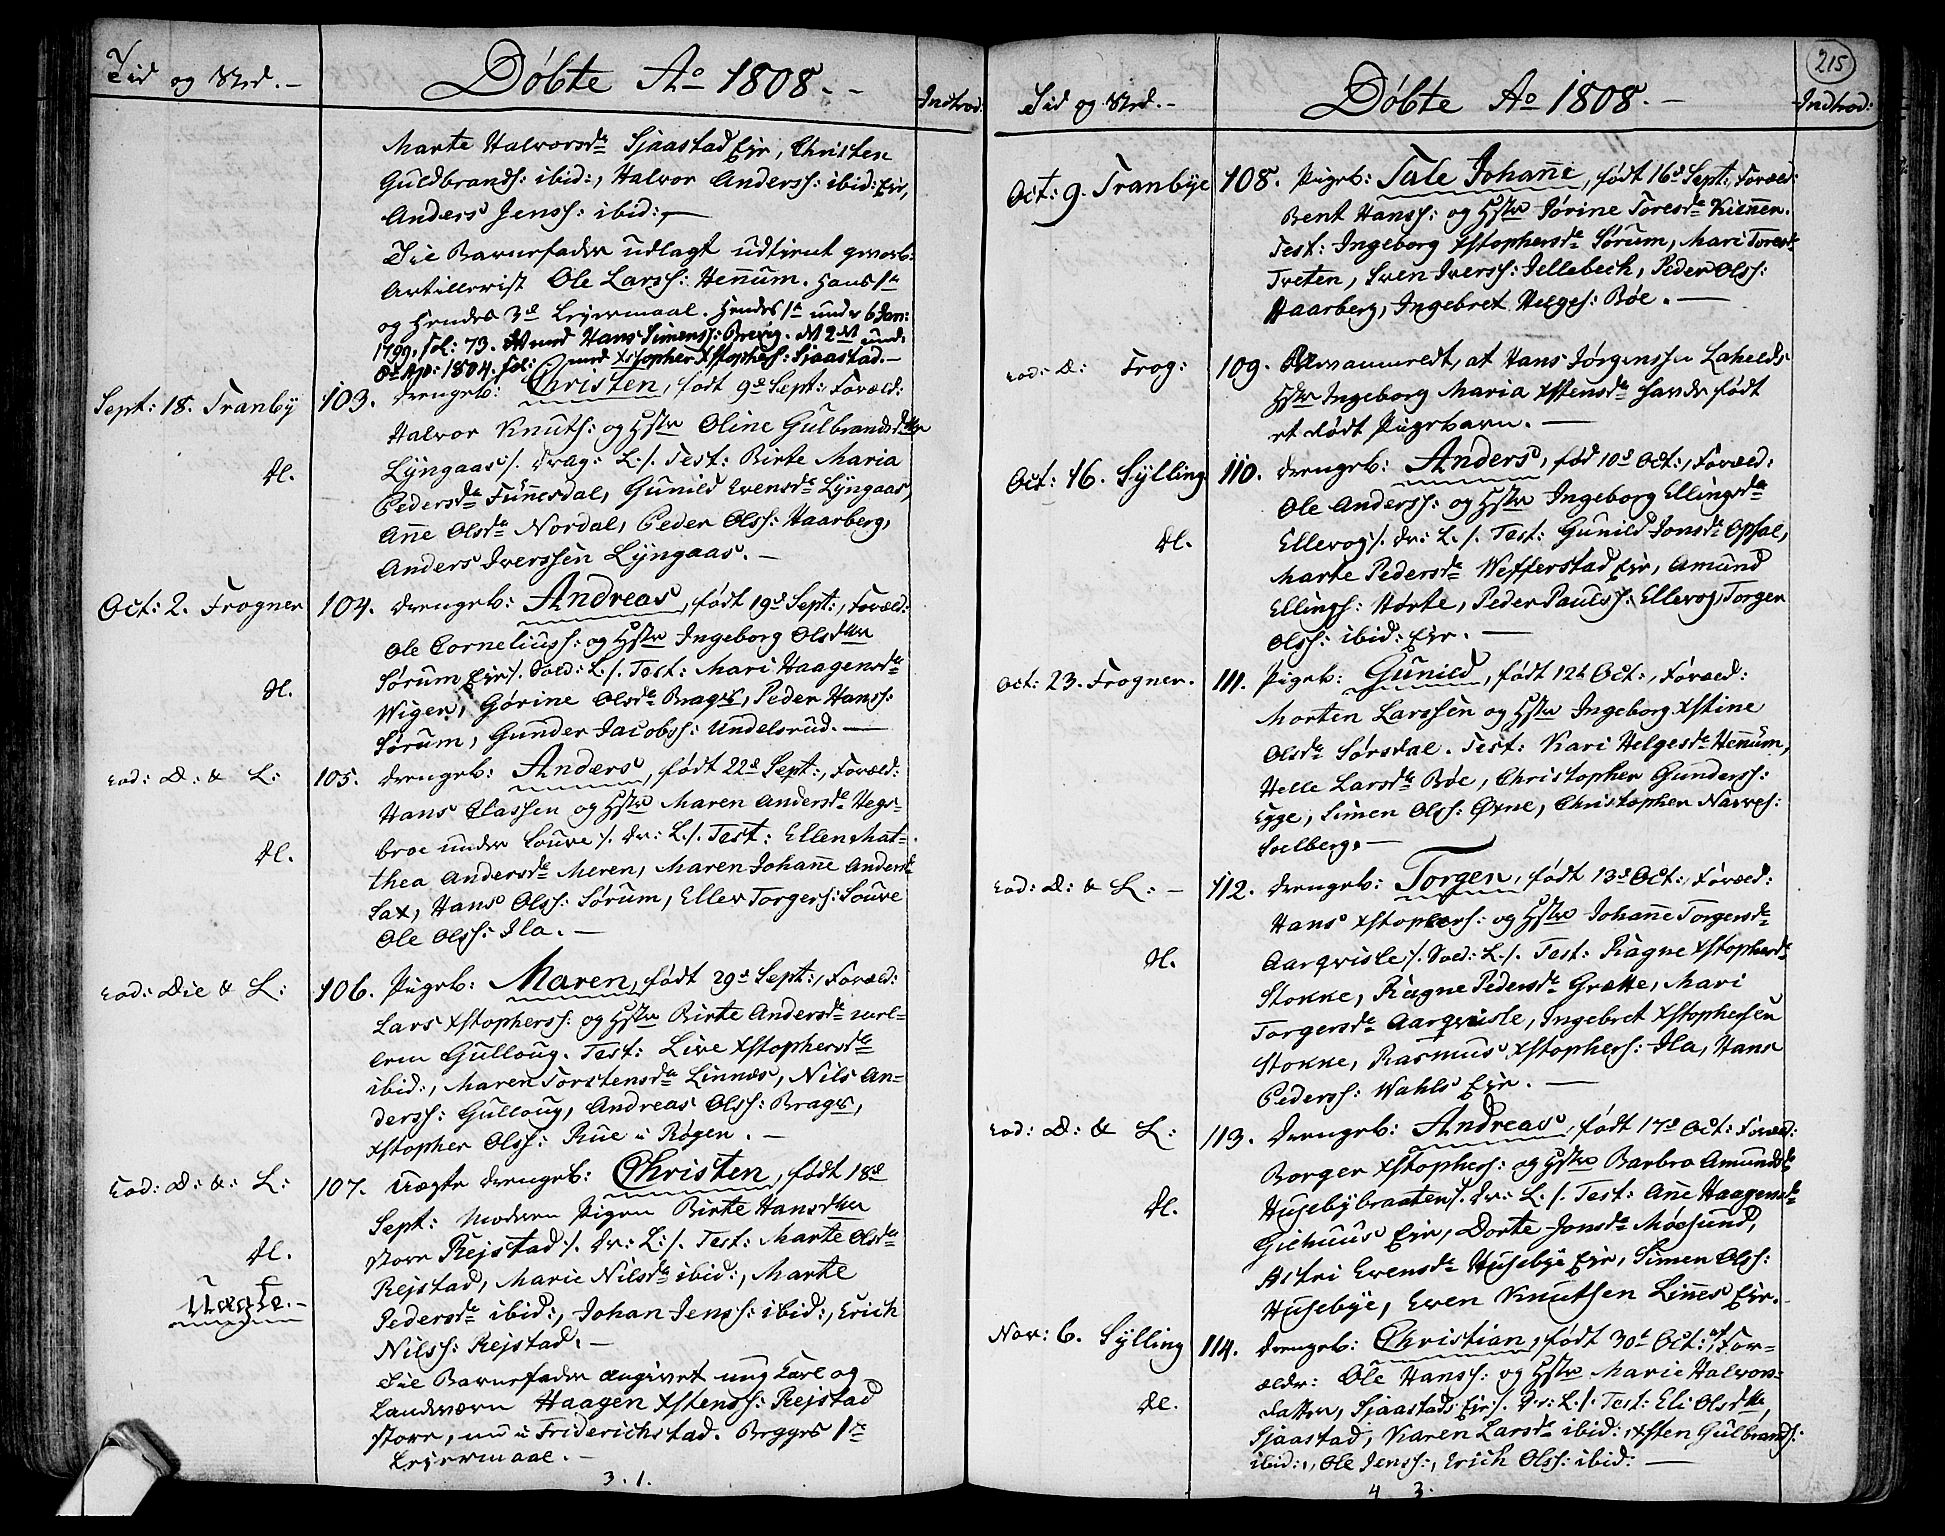 Tid og Sted.
Døbte Ao 1808.
Introd:
Marte Halvorsdr Sjaastad Eir, Christen
Guldbrands: ibid:, Halvor Anderss: ibid: Eir,
Anders Jenss: ibid:
Til Barnefader udlagt
Artillerist Ole Larss: Hennum. Hans 1te
og Hendes 3de Leiermaal. Hendes 1te under 6 Jan:
1799. fol: 73. med Hans Simenss: Brevig. No 2 und:
8de Apr: 1804. fol: med Xstopher Xstophers: Sjaastad.
Sept: 18. Tranby 103. Drengeb: Christen, født 9de Sept: Foræld:
Halvor Knuts: og Hstr Oline Gulbrandsdtter
Lÿngaas /. Drag: L: /. Test: Birte Maria
dl.
Pedersdr Funnesdal, Gunild Evensdr Lÿngaas,
Anne Olsdr Nordal, Peder Olss: Haarberg,
Anders Iverssen Lÿngaas.
Oct: 2. Frogner 104. Drengeb: Andreas, født 19de Sept:, Foræld:
Ole Corneliuss: og Hstr Ingeborg Olsdtter
Sørum Eir /. Soed: L: /. Test: Mari Haagensdr
dl.
Wiger, Gørine Olsdr Bragr, Peder Hanss:
Sørum, Gunder Jacobss: Undelsrud.
eod: D: & L: 105. Drengeb: Anders, født 22de Sept:, Foræld:
Hans Classen og Hstr Maren Andersdr Hegs-
broe under Louve /. Dr: L: /. Test: Ellen Mat-
dl.
thea Andersdr Meren, Maren Johanne Andersdr
Sax, Hans Olss: Sørum, Ellev Torgers: Souve
Ole Olss: Ila.
eod: Die & L: 106. Pigeb: Maren, født 29de Sept:, Foræld:
Lars Xstopherss: og Hstr Birte Andersdr
Gulloug. Test: Live Xstophersdr
ibid:, Maren Torstensdr Linnæs, Nils An-
derss: Gulloug, Andreas Olss: Bragr,
Xstopher Olss: Rue i Røgen.
eod: D: &: L: 107. Uægte Drengeb: Christen, født 18de
Sept: Moderen Pigen Birte Hansdtter
store Rejstad /. Dr: L: /. Test: Marte Olsdr
dl.
Rejstad, Marie Nilsdr ibid:, Marte
Uægte.
Pedersdr ibid:, Johan Jenss: ibid:, Erich
Nilss: Rejstad.
Til Barnefader angivet ung Karl og
Landværn Haagen Xstenss: Rejstad
store, nu i Friderichstad. Begges 1te
Leiermaal.
3. 1.
215
Tid og Sted.
Døbte Ao 1808.
Introd:
Oct: 9. Tranbÿe 108. Pigeb: Tale Johanne, født 16de Sept:, Foræld:
Bent Hanss: og Hstr Jørine Toresdr Kinnen.
Test: Ingeborg Xstophersdr Sørum, Mari Toresdr
Treten, Sven Iverss: Jellebech, Peder Olss:
Haarberg, Ingebret Helges: Bøe.
eod: D: Frog: 109. at Hans Jørgenssen Lahelds
Hstr Ingeborg Maria Xstensdr havde født
et dødt Pigebarn.
Oct: 16. Sylling 110. Drengeb: Anders, fød 10de Oct:, Foræld:
Ole Anderss: og Hstr Ingeborg Ellingsdr
Ellevog /. Dr: L. /. Test: Gunild Jonsdr Opsal,
dl.
Marte Pedersdr Wefferstad Eir, Amund
Ellingss: Hørte, Peder Paulss: Ellevog, Torger
Olss: ibid: Eir.
Oct: 23. Frogner. 111. Pigeb: Gunild, født 12te Oct:, Foræld:
Morten Larssen og Hstr Ingeborg Xstine
Olsdr Sørsdal. Test: Kari Helgesdr Hennum,
Helle Larsdr Bøe, Christopher Gunderss:
Egge, Simen Olss: Øvne, Christopher Narves:
Solberg.
eod: D: & L: 112. Drengeb: Torgen, født 13de Oct:, Foræld:
Hans Xstophers: og Hstr Johanne Torgersdr
Aarqvisle /. Soed: L: /. Test: Ragne Xstophersdr
dl.
Stokke, Ragne Pedersdr Grette, Mari
Torgersdr Aarqvisle, Ingebret Xstophersen
Stokke, Rasmus Xstophers: Ila, Hans
Pederss: Wahls Eir.
eod: D: & L: 113. Drengeb: Andreas, født 17de Oct: Foræld:
Borger Xstophers: og Hstr Barbra Amundsdr
Husebybraaten /. Dr: L: /. Test: Anne Haagensdr
dl.
Giehuus Eir, Dorte Jonsdr Møesund,
Astri Evensdr Husebÿe Eir, Simen Olss:
Husebÿe, Even Knutsen Linnes Eir.
Nov: 6. Sylling 114. Drengeb: Christian, født 30te Oct:, For-
ældr: Ole Hanss: og Hstr Marie Halvors-
datter, Sjaastads Eir /. Dr: L: /. Test: Eli Olsdtter,
dl.
Sjaastad, Karen Larsdr ibid:, Xsten Gulbrands:
ibid:, Ole Jenss:, Erich Olss: ibid:
4 3.